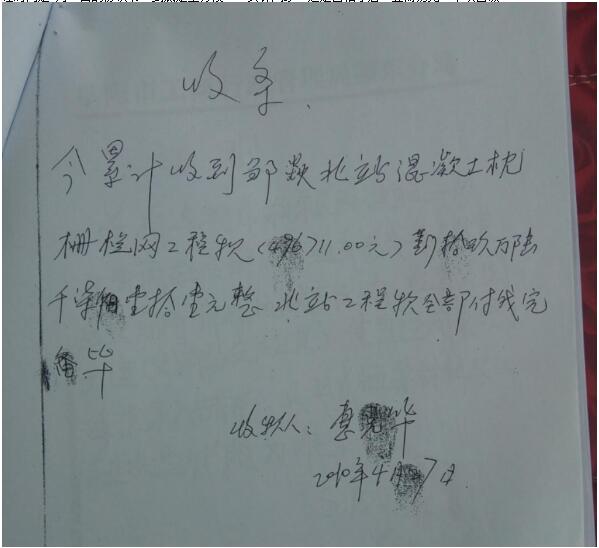 收条
今累计收到邹燚北站混凝土枕
栅栏网工程款(496711.00元)肆拾玖万陆
千柒佰壹拾壹元整 北站工程款全部付钱完
毕
收款人: 华
2010年4月7日